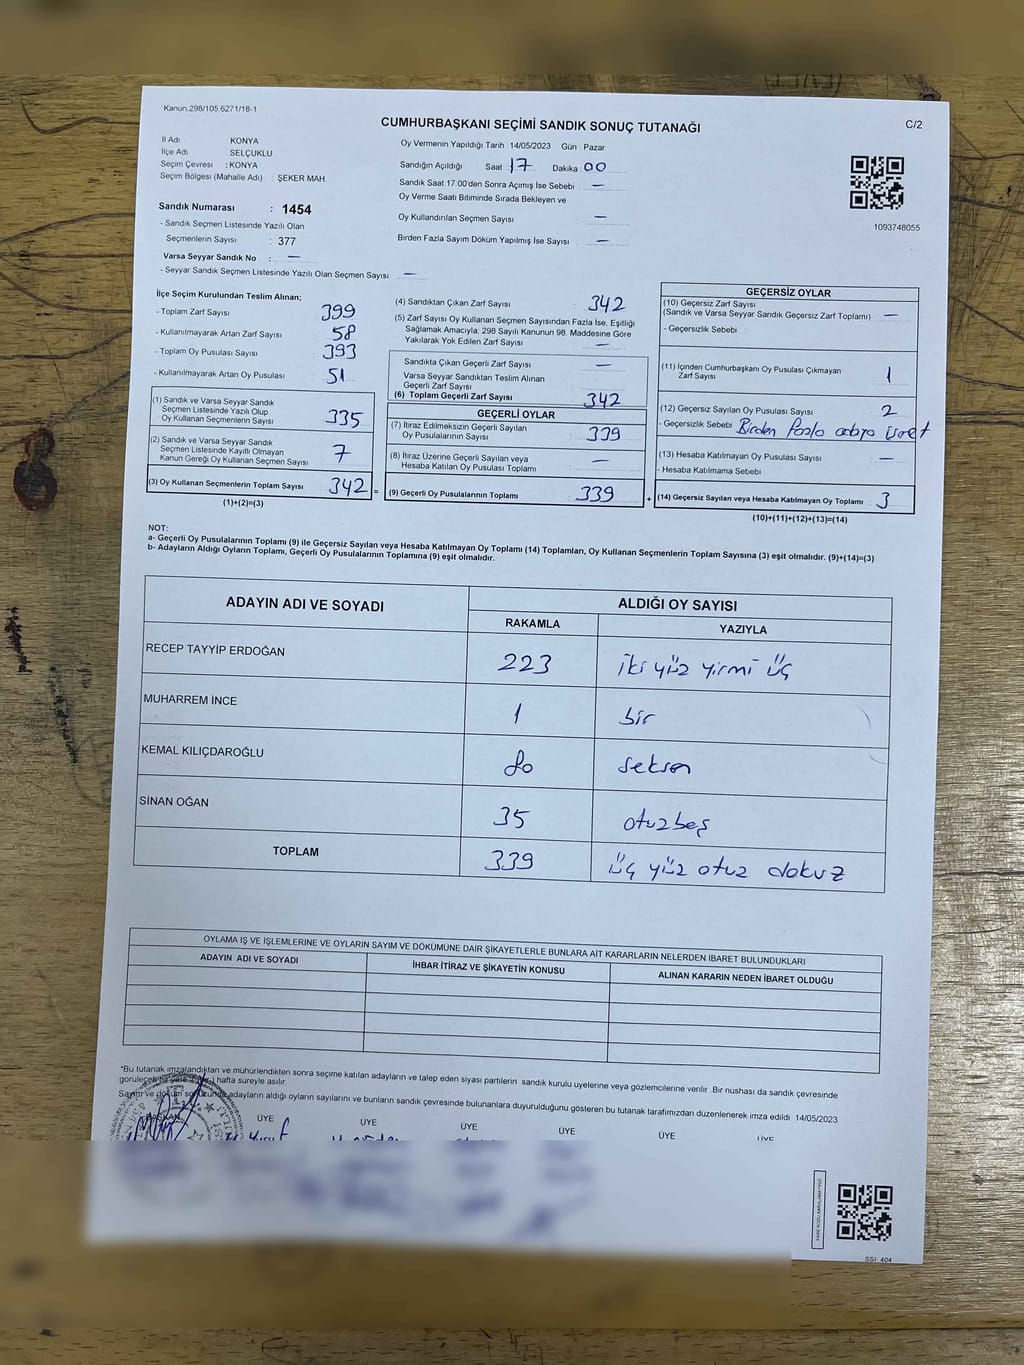 Kanun.298/105.6271/18-1
CUMHURBAŞKANI SEÇİMİ SANDIK SONUÇ TUTANAĞI
C/2
İl Adı KONYA
İlçe Adı SELÇUKLU
Seçim Çevresi : KONYA
Seçim Bölgesi (Mahalle Adı) : ŞEKER MAH.
Sandık Numarası : 1454
- Sandık Seçmen Listesinde Yazılı Olan
Seçmenlerin Sayısı : 377
Varsa Seyyar Sandık No : —
- Seyyar Sandık Seçmen Listesinde Yazılı Olan Seçmen Sayısı : —
Oy Vermenin Yapıldığı Tarih :14/05/2023 Gün : Pazar
Sandığın Açıldığı Saat 17 Dakika 00
Sandık Saat 17:00'den Sonra Açımış İse Sebebi : —
Oy Verme Saati Bitiminde Sırada Bekleyen ve
Oy Kullandırılan Seçmen Sayısı : —
Birden Fazla Sayım Döküm Yapılmış İse Sayısı : —
1093748055
İlçe Seçim Kurulundan Teslim Alınan;
- Toplam Zarf Sayısı : 399
- Kullanılmayarak Artan Zarf Sayısı : 58
- Toplam Oy Pusulası Sayısı : 393
- Kullanılmayarak Artan Oy Pusulası : 51
(1) Sandık ve Varsa Seyyar Sandık
Seçmen Listesinde Yazılı Olup
Oy Kullanan Seçmenlerin Sayısı : 335
(2) Sandık ve Varsa Seyyar Sandık
Seçmen Listesinde Kayıtlı Olmayan
Kanun Gereği Oy Kullanan Seçmen Sayısı : 7
(3) Oy Kullanan Seçmenlerin Toplam Sayısı : 342 =
(1)+(2)=(3)
(4) Sandıktan Çıkan Zarf Sayısı : 342
(5) Zarf Sayısı Oy Kullanan Seçmen Sayısından Fazla İse, Eşitliği
Sağlamak Amacıyla; 298 Sayılı Kanunun 98. Maddesine Göre
Yakılarak Yok Edilen Zarf Sayısı : —
Sandıkta Çıkan Geçerli Zarf Sayısı : —
Varsa Seyyar Sandıktan Teslim Alınan
Geçerli Zarf Sayısı
(6) Toplam Geçerli Zarf Sayısı : 342
GEÇERLİ OYLAR
(7) İtiraz Edilmeksizin Geçerli Sayılan
Oy Pusulalarının Sayısı : 339
(8) İtiraz Üzerine Geçerli Sayılan veya
Hesaba Katılan Oy Pusulası Toplamı : —
(9) Geçerli Oy Pusulalarının Toplamı : 339 +
GEÇERSİZ OYLAR
(10) Geçersiz Zarf Sayısı
(Sandık ve Varsa Seyyar Sandık Geçersiz Zarf Toplamı) : —
- Geçersizlik Sebebi :
(11) İçinden Cumhurbaşkanı Oy Pusulası Çıkmayan
Zarf Sayısı : 1
(12) Geçersiz Sayılan Oy Pusulası Sayısı : 2
- Geçersizlik Sebebi : Birden fazla adaya işret
(13) Hesaba Katılmayan Oy Pusulası Sayısı : —
- Hesaba Katılmama Sebebi
(14) Geçersiz Sayılan veya Hesaba Katılmayan Oy Toplamı : 3
(10)+(11)+(12)+(13)=(14)
NOT:
a- Geçerli Oy Pusulalarının Toplamı (9) ile Geçersiz Sayılan veya Hesaba Katılmayan Oy Toplamı (14) Toplamları, Oy Kullanan Seçmenlerin Toplam Sayısına (3) eşit olmalıdır. (9)+(14)=(3)
b- Adayların Aldığı Oyların Toplamı, Geçerli Oy Pusulalarının Toplamına (9) eşit olmalıdır.
ADAYIN ADI VE SOYADI
ALDIĞI OY SAYISI
RAKAMLA YAZIYLA
RECEP TAYYİP ERDOĞAN 223 iki yüz yirmi üç
MUHARREM İNCE 1 bir
KEMAL KILIÇDAROĞLU 80 seksen
SİNAN OĞAN 35 otuzbeş
TOPLAM 339 üç yüz otuz dokuz
OYLAMA İŞ VE İŞLEMLERİNE VE OYLARIN SAYIM VE DÖKÜMÜNE DAİR ŞİKAYETLERLE BUNLARA AİT KARARLARIN NELERDEN İBARET BULUNDUKLARI
ADAYIN ADI VE SOYADI İHBAR İTİRAZ VE ŞİKAYETİN KONUSU ALINAN KARARIN NEDEN İBARET OLDUĞU
"Bu tutanak imzalandıktan ve mühürlendikten sonra seçime katılan adayların ve talep eden siyasi partilerin sandık kurulu üyelerine veya gözlemcilerine verilir .Bir nüshası da sandık çevresinde
görülecek bir yere hafta süreyle asılır.
Sayım ve döküm adayların aldığı oyların sayılarını ve bunların sandık çevresinde bulunanlara duyurulduğunu gösteren bu tutanak tarafımızdan düzenlenerek imza edildi. 14/05/2023
BAŞKAN ÜYE ÜYE ÜYE ÜYE ÜYE ÜYE
SSI_404